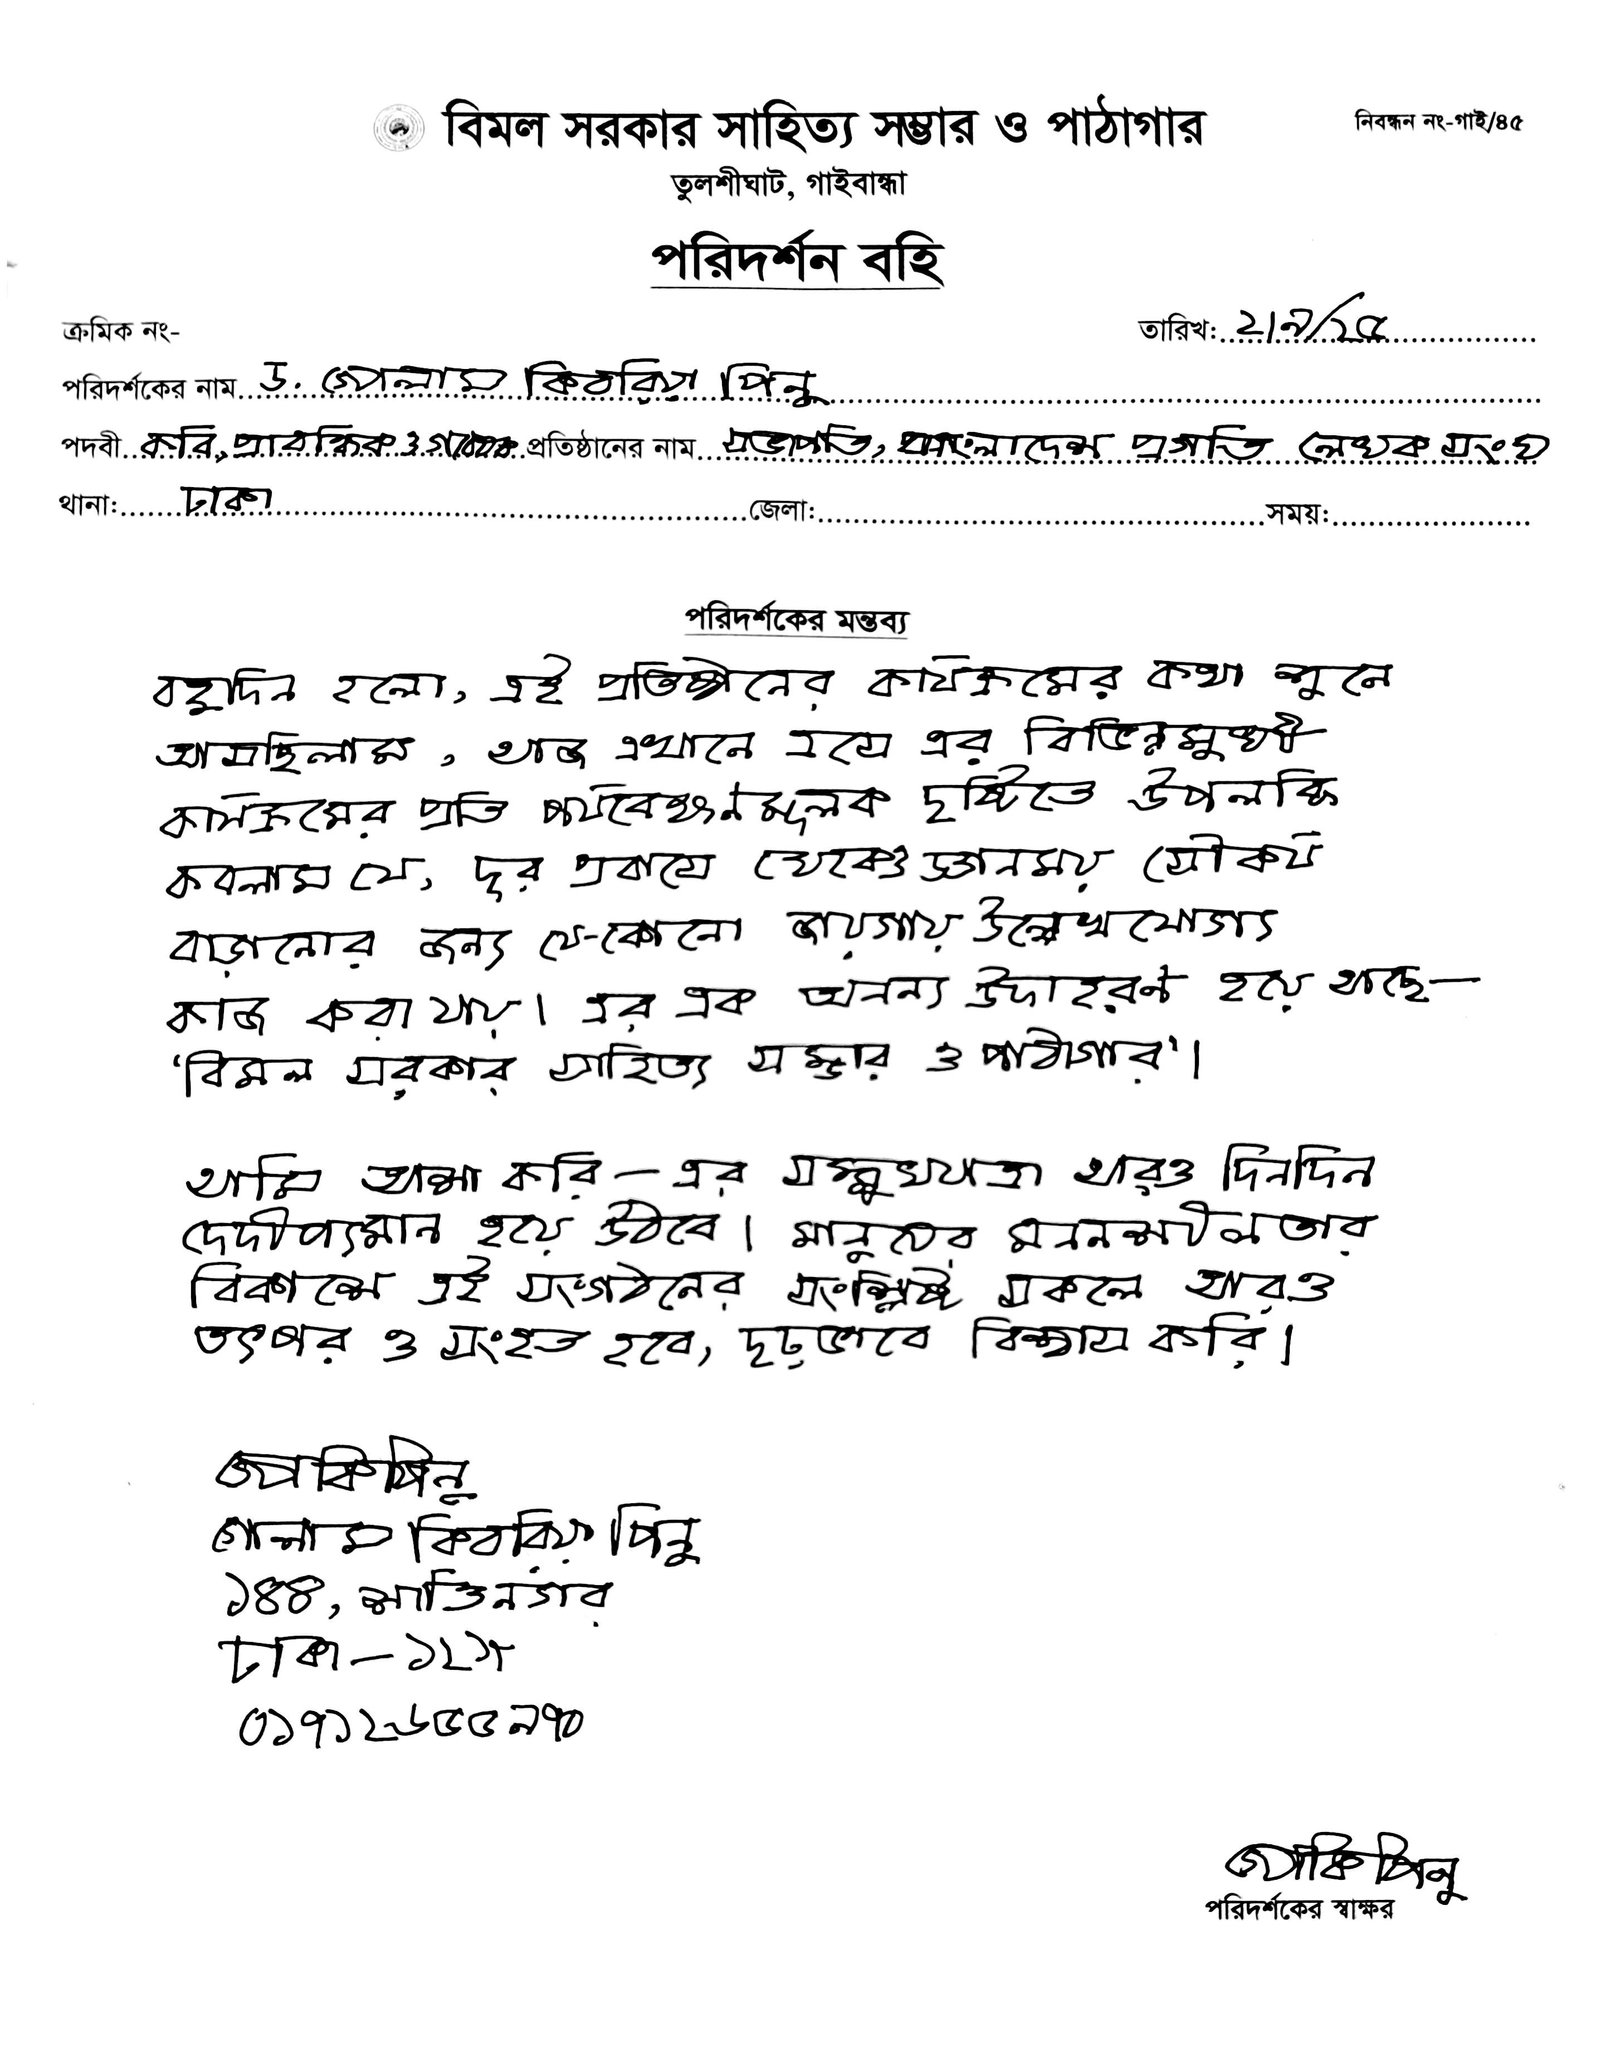 বিমল সরকার সাহিত্য সম্ভার ও পাঠাগার
নিবন্ধন নং-গাই/৪৫
তুলশীঘাট, গাইবান্ধা
পরিদর্শন বহি
ক্রমিক নং-
তারিখ: ২/৯/২৫
পরিদর্শকের নাম ড. গোলাম কিবরিয়া পিনু
পদবী কবি, প্রাবন্ধিক ও গবেষক প্রতিষ্ঠানের নাম সভাপতি, বাংলাদেশ প্রগতি লেখক সংঘ
থানা: ঢাকা জেলা: সময়:
পরিদর্শকের মন্তব্য
বহুদিন হলো, এই প্রতিষ্ঠানের কার্যক্রমের কথা শুনে
আসছিলাম, আজ এখানে এসে এর বিভিন্নমুখী
কার্যক্রমের প্রতি পর্যবেক্ষণমূলক দৃষ্টিতে উপলব্ধি
করলাম যে, দূর প্রবাসে থেকেও জ্ঞানময় সৌকর্য
বাড়ানোর জন্য যে-কোনো জায়গায় উল্লেখযোগ্য
কাজ করা যায়। এর এক অনন্য উদাহরণ হয়ে আছে—
‘বিমল সরকার সাহিত্য সম্ভার ও পাঠাগার’।
আমি আশা করি – এর সম্মুখযাত্রা আরও দিনদিন
দেদীপ্যমান হয়ে উঠবে। মানুষের মননশীলতার
বিকাশে এই সংগঠনের সংশ্লিষ্ট সকলে আরও
তৎপর ও সংহত হবে, দৃঢ়ভাবে বিশ্বাস করি।
গোকিপিনু
গোলাম কিবরিয়া পিনু
১৪৪, শান্তিনগর
ঢাকা – ১২১৭
০১৭১২৬৫৫৯৭০
গোকিপিনু
পরিদর্শকের স্বাক্ষর